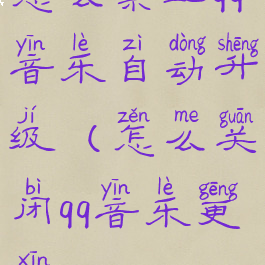 yīn lè zì dòng shēng
音乐自动升
jí zěn me guān
级(怎么关
bì yīn lè gēng
闭qq音乐更
xīn